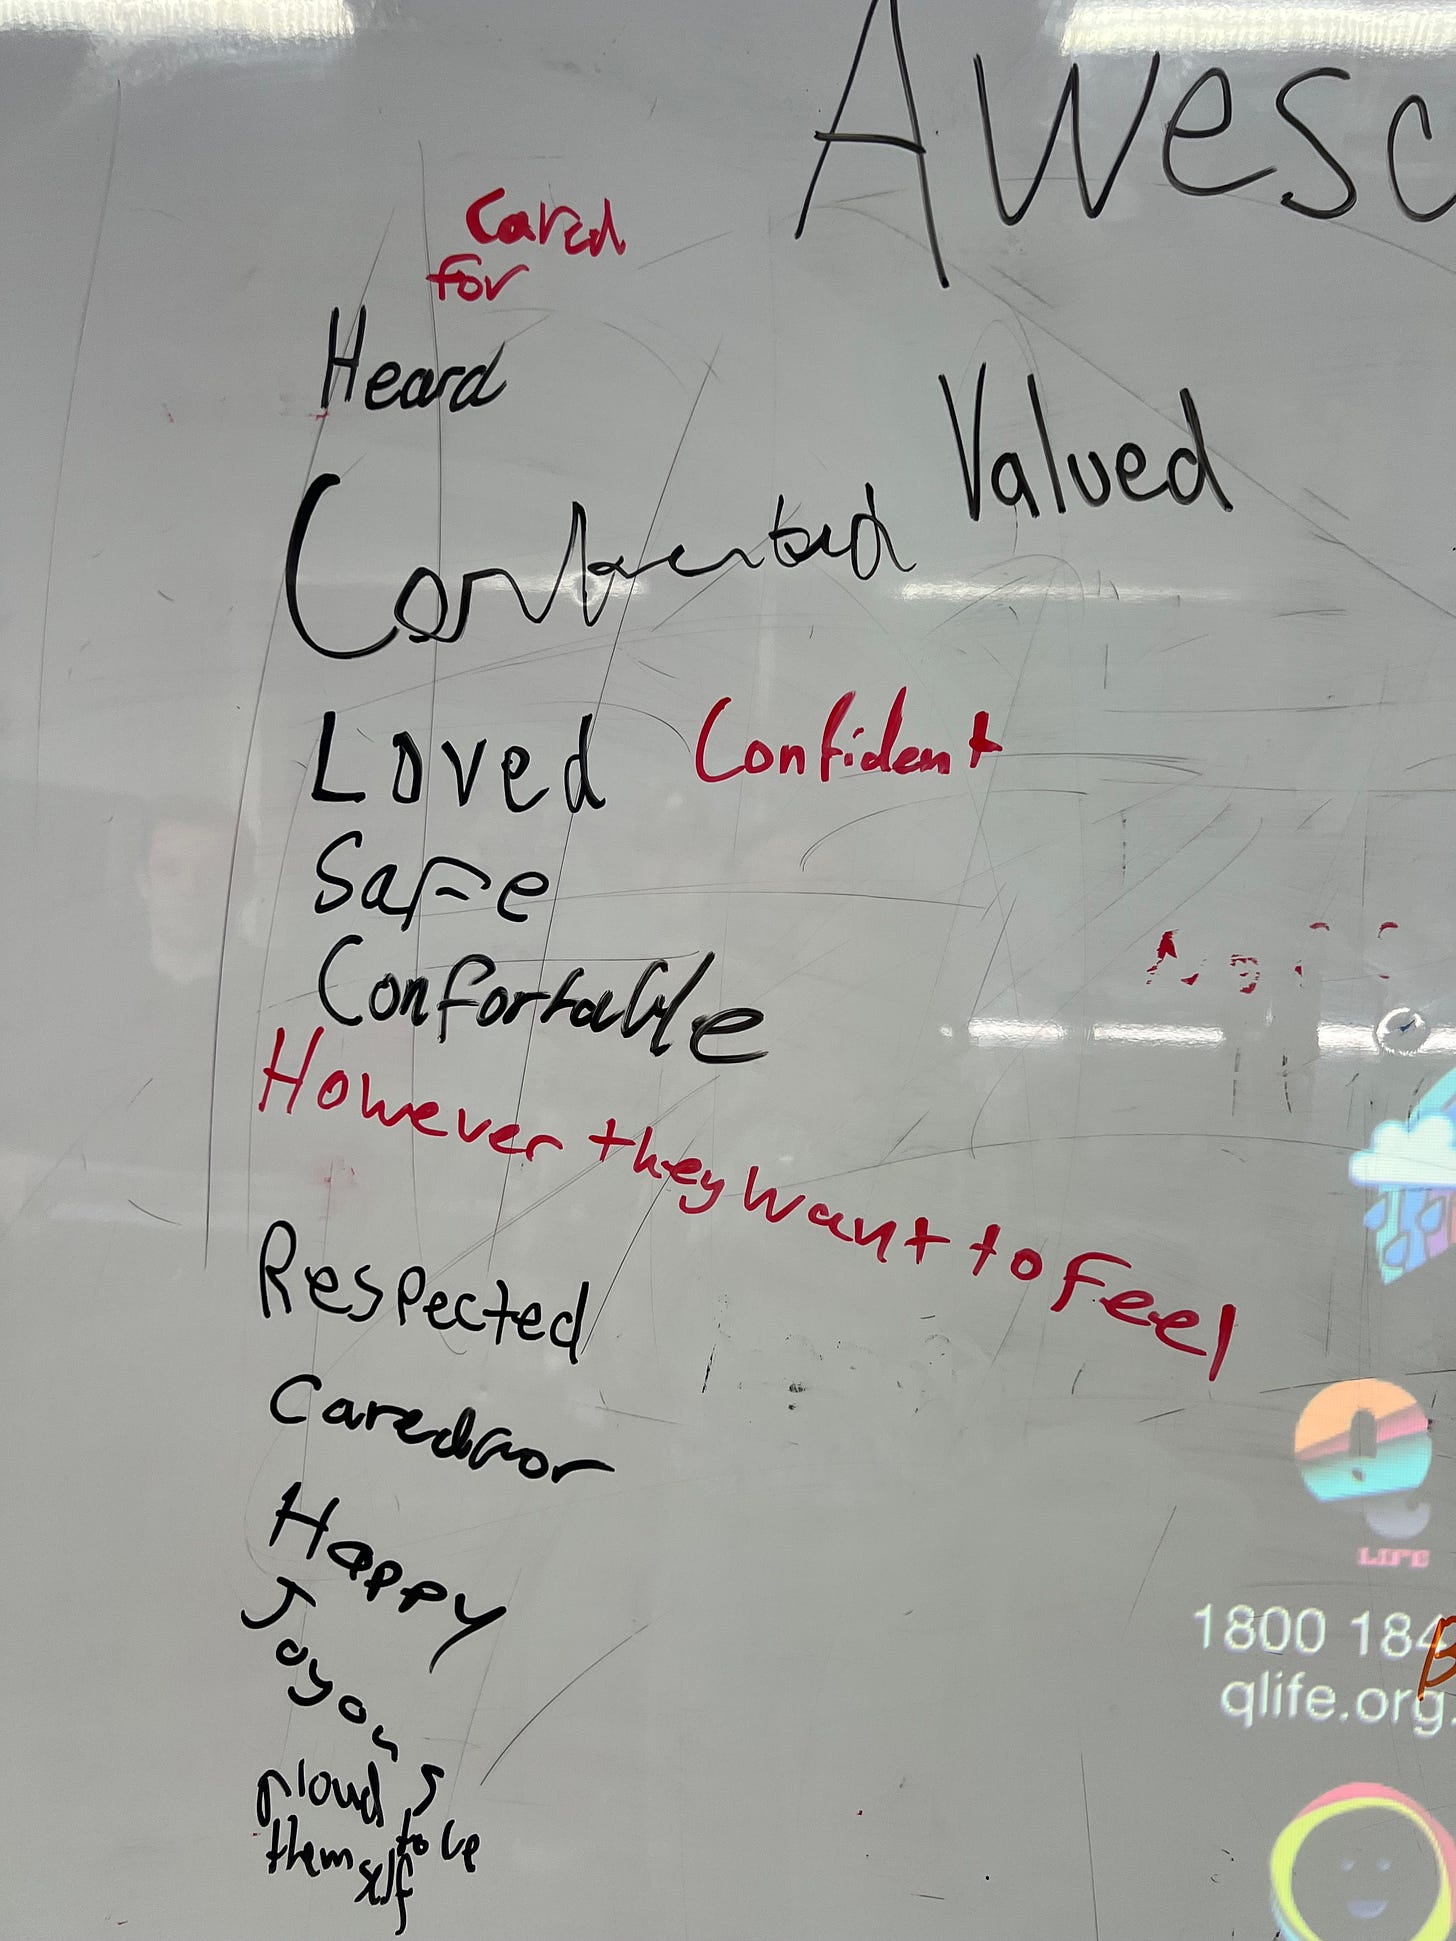 Awesc
Cared
for
Heard
Valued
Loved
Confident
Safe
Confortable
However they want to feel
Respected
Cared for
Happy
Joyous
proud to be
themself
LIFE
1800 184
qlife.org.